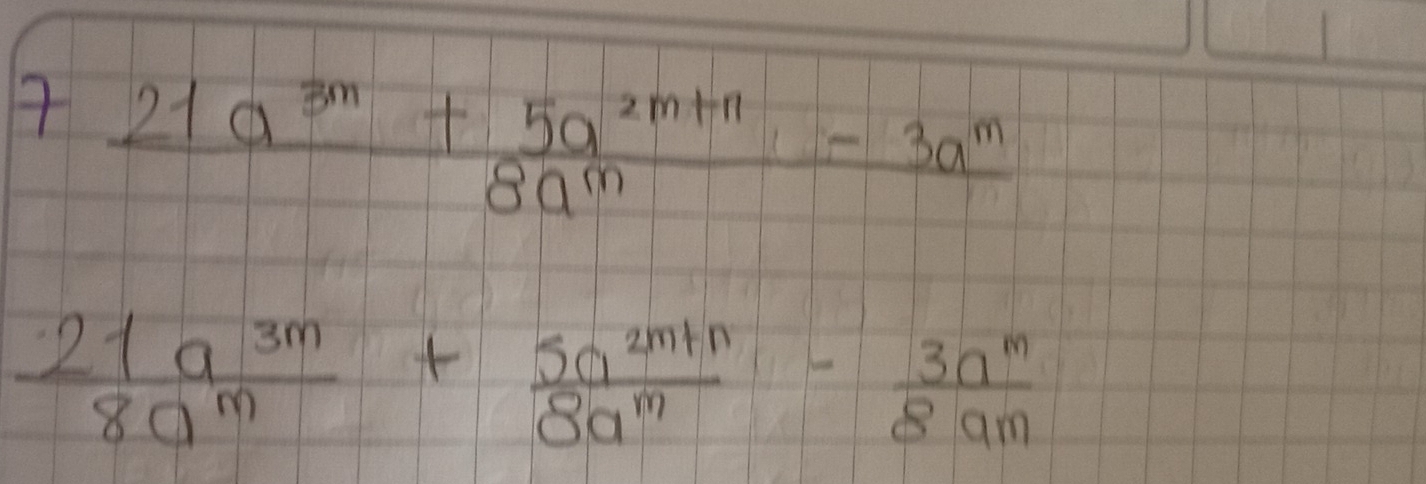 7 21a³ᵐ + 5a²ᵐ⁺ⁿ - 3aᵐ
8aᵐ
21a³ᵐ + 5a²ᵐ⁺ⁿ - 3aᵐ
8aᵐ 8aᵐ 8am